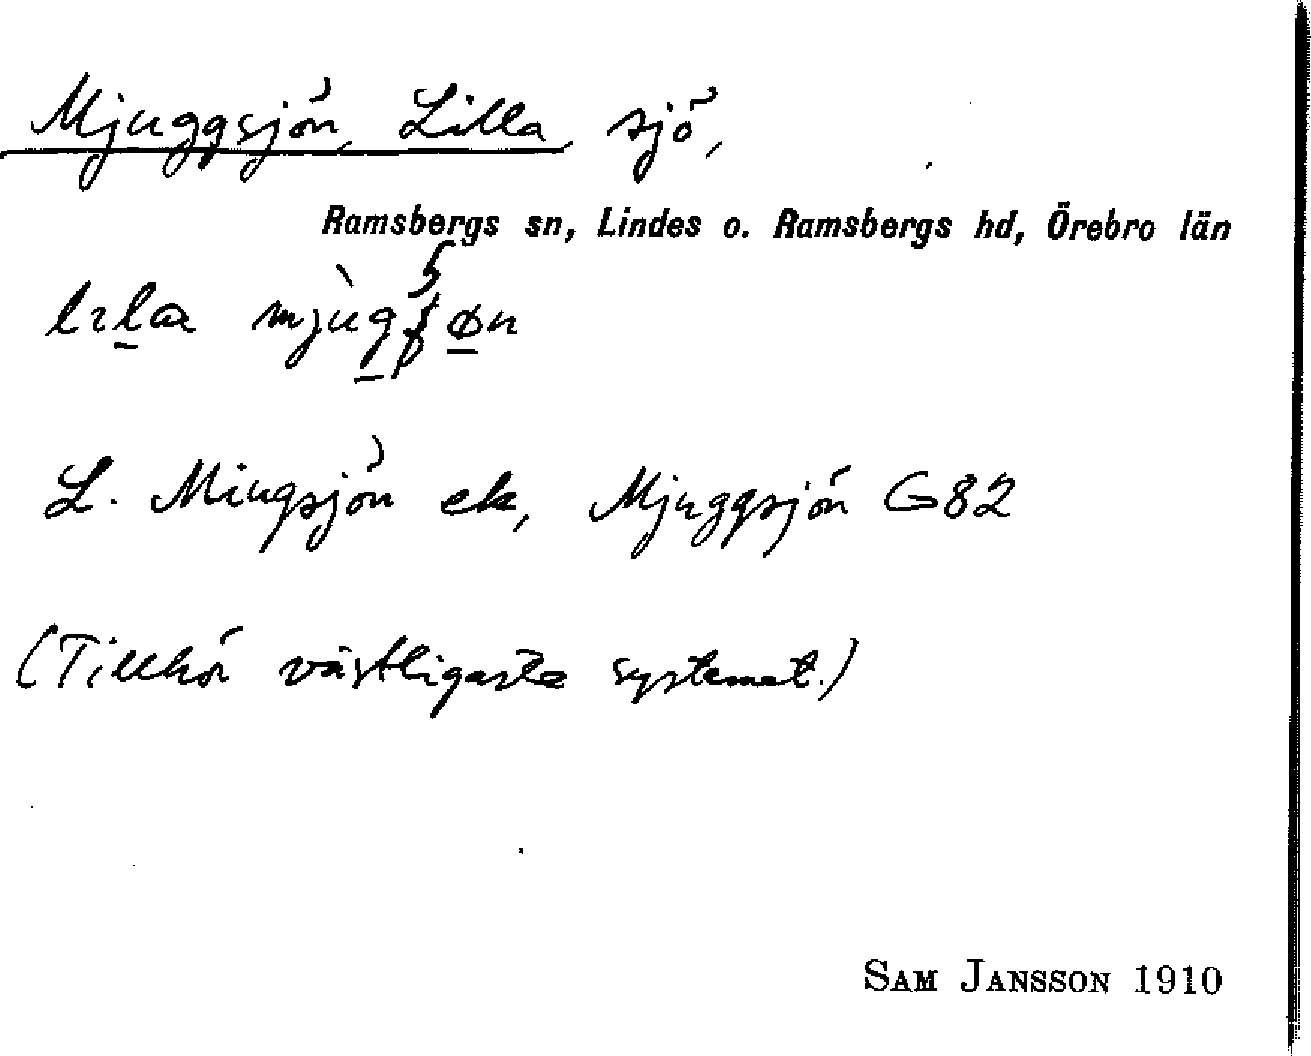 Mjuggsjön, Lilla, sjö,
Ramsbergs sn, Lindes o. Ramsbergs hd, Örebro län
L. Miugsjön ek, Mjuggsjön G82
(Tillhör västligaste systemet.)
SAM JANSSON 1910